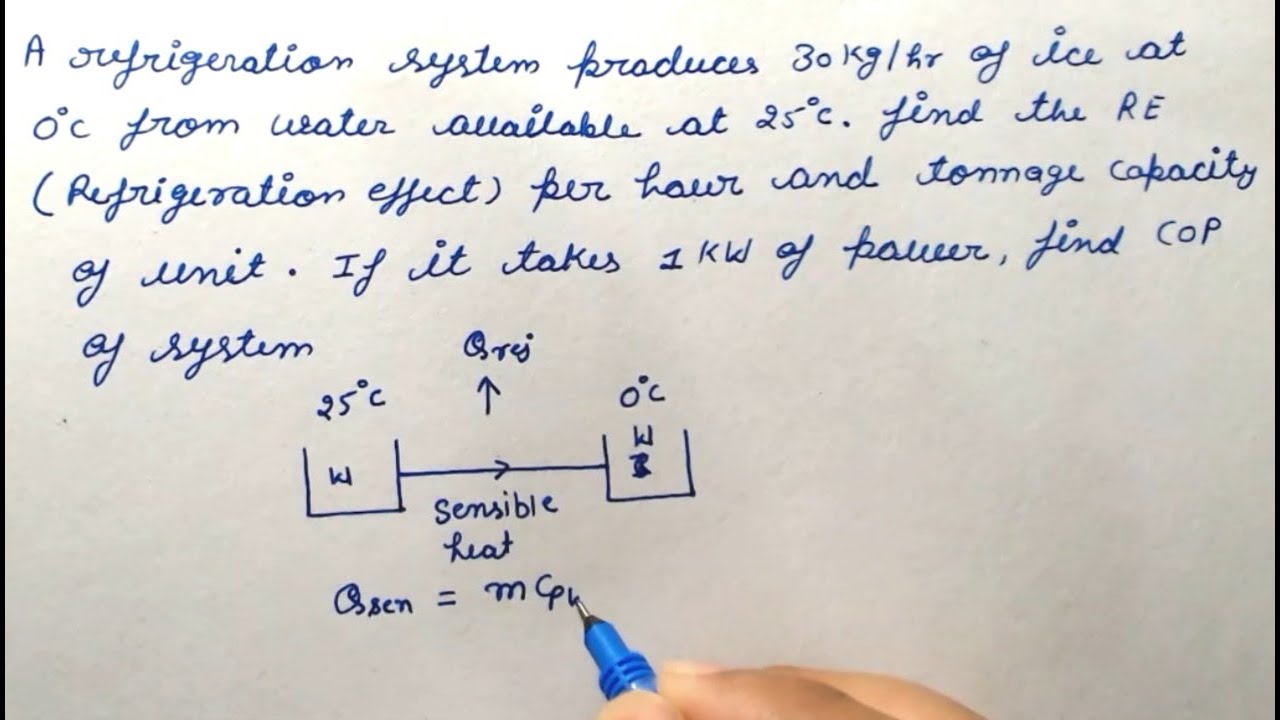 A refrigeration system produces 30 Kg/hr of ice at
0°c from water available at 25°c. find the RE
(Refrigeration effect) per hour and tonnage capacity
of unit. If it takes 1 KW of power, find COP
of system
Qrej
25°C
0°C
W
W
Sensible
heat
Qsen = m Cpw